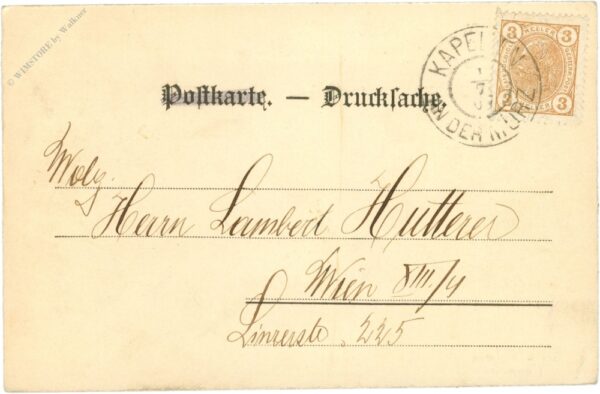 © WIMSTORE by Walkner
Postkarte. — Drucksache.
KAPELLEN
AN DER MÜRZ
3 3
3 3
Wolg.
Herrn Lambert Hutterer
Wien XIII./4
Linzerstr. 225